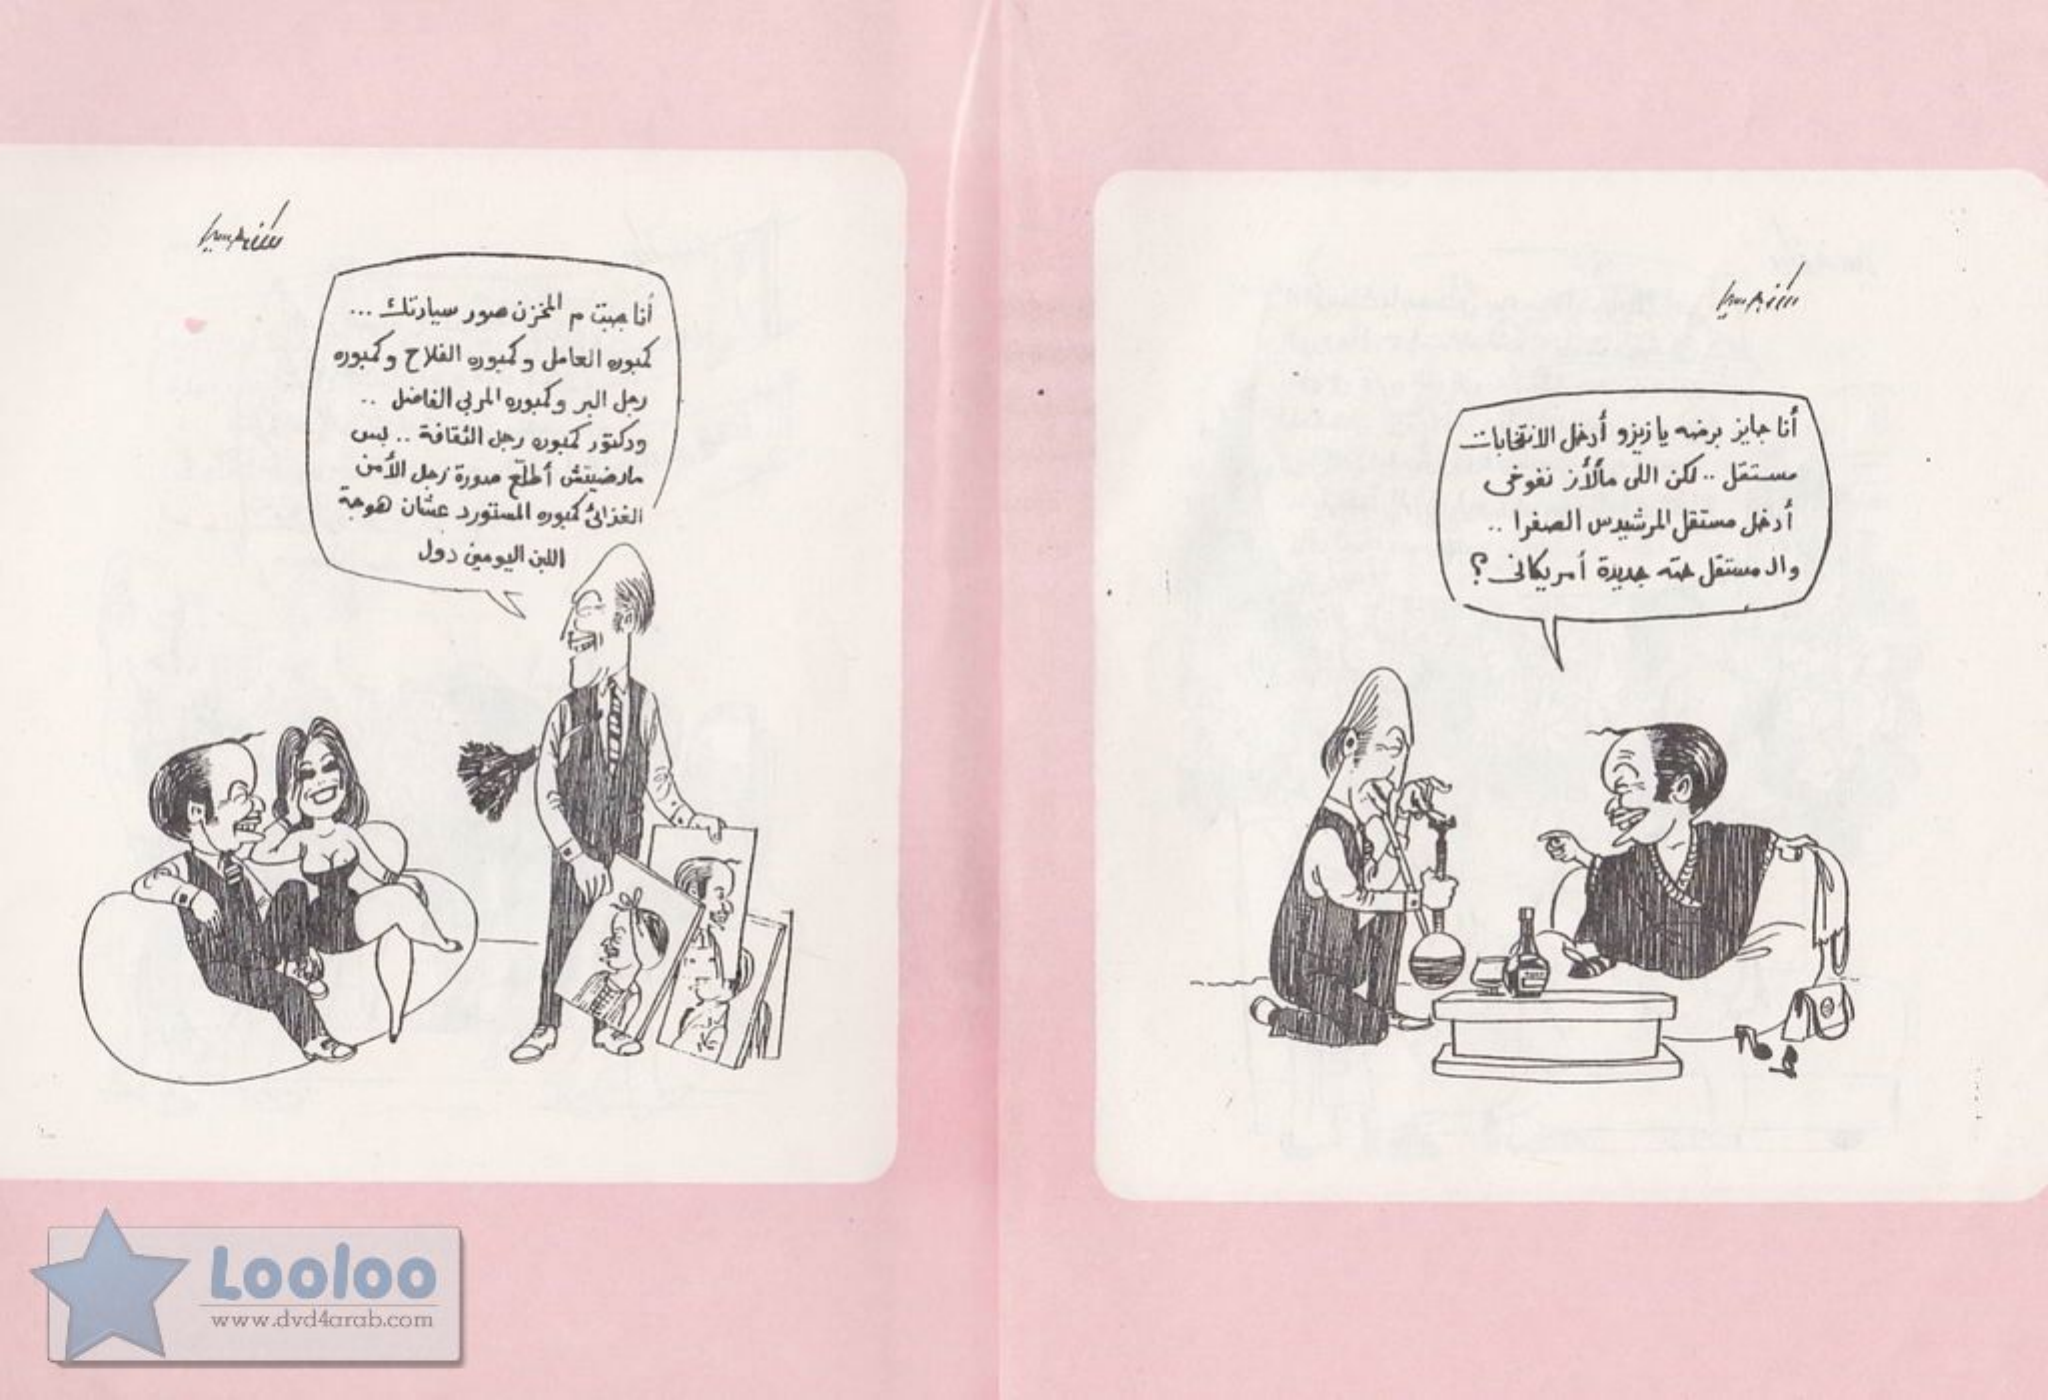 أنا جايز برضه يا زيزو أدخل الانتخابات
مستقل .. لكن اللى مالأز نفوخى
أدخل مستقل المرشيدس الصفرا ..
والا مستقل حته جديدة أمريكانى ؟
أنا جبت م المخزن صور سيادتك ...
كمبوره العامل وكمبوره الفلاح وكمبوره
رجل البر وكمبوره المربى الفاضل ..
ودكتور كمبوره رجل الثقافة .. بس
مارضيتش أطلّع صورة رجل الأمن
الغذائى كمبوره المستورد عشان هوجة
اللبن اليومين دول
Looloo
www.dvd4arab.com